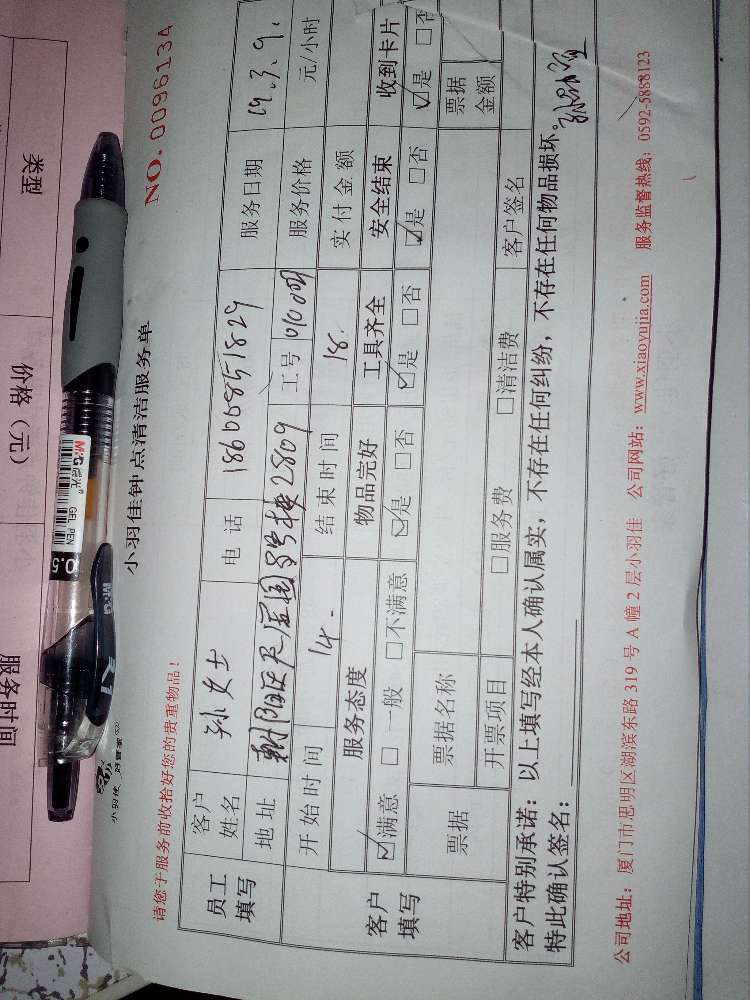 类型 价格（元） 服务时间
M&G 晨光 GEL PEN 0.5
小羽佳 好管家
小羽佳钟点清洁服务单
NO. 0096134
请您于服务前收拾好您的贵重物品！
员工填写 客户姓名 孙女士 电话 18605851829 服务日期 19.3.9.
地址 2809 工号 服务价格 元/小时
开始时间 14 - 结束时间 18. 实付金额
客户填写 服务态度 物品完好 工具齐全 安全结束 收到卡片
☑满意 □一般 □不满意 ☑是 □否 ☑是 □否 ☑是 □否 ☑是 □否
票据 票据名称 票据金额
开票项目 □服务费 □清洁费 客户签名
客户特别承诺：以上填写经本人确认属实，不存在任何纠纷，不存在任何物品损坏。
特此确认签名：
公司地址：厦门市思明区湖滨东路 319 号 A 幢 2 层小羽佳 公司网站：www.xiaoyujia.com 服务监督热线：0592-5888123